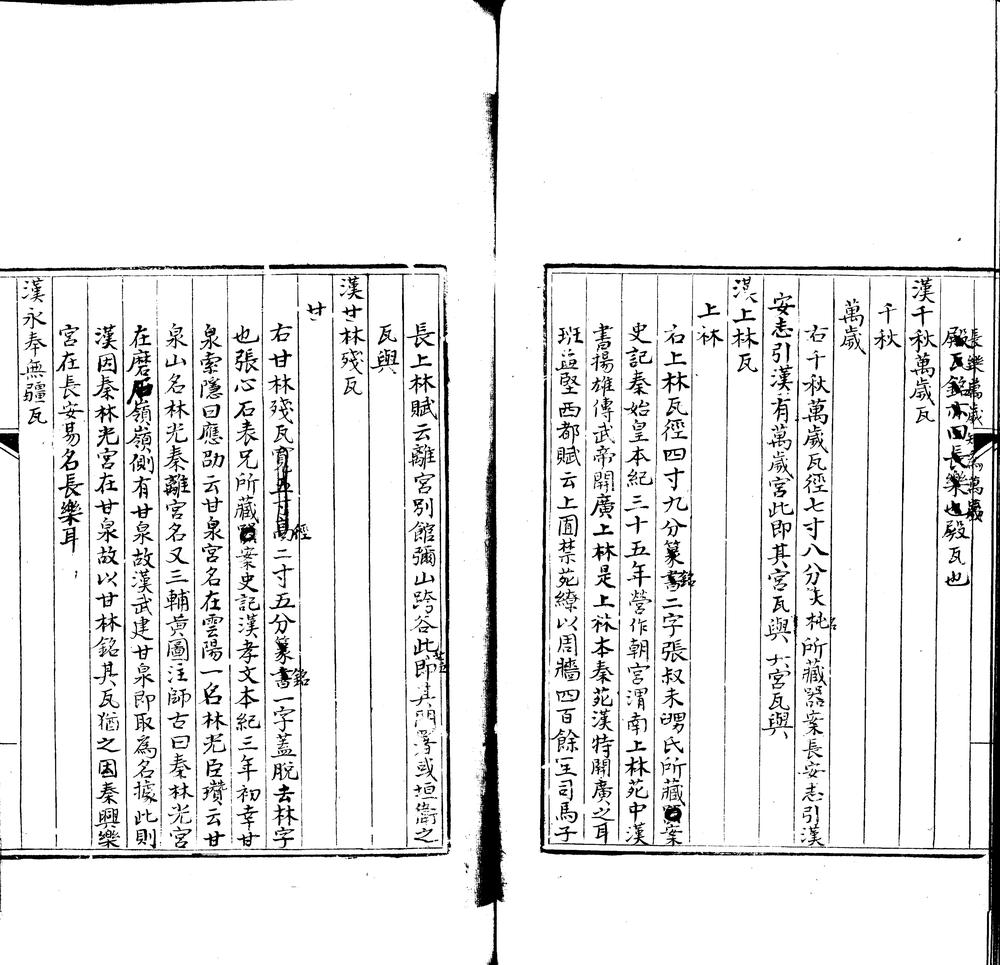 殿瓦銘亦曰長樂也殿瓦也
漢千秋萬歲瓦
千秋
萬歲
右千秋萬歲瓦徑七寸八分所藏器案長安志引漢
安志引漢有萬歲宮此即其宮瓦與六宮瓦與
漢上林瓦
上林
右上林瓦徑四寸九分篆書銘二字張叔未舅氏所藏案
史記秦始皇本紀三十五年營作朝宮渭南上林苑中漢
書揚雄傳武帝開廣上林是上林本秦苑漢特開廣之耳
班孟堅西都賦云上囿禁苑繚以周牆四百餘里司馬子
長上林賦云離宮別館彌山跨谷此即其門署或垣衛之
瓦與
漢甘林殘瓦
甘
右甘林殘瓦寬五寸高徑二寸五分篆書銘一字蓋脫去林字
也張心石表兄所藏案史記漢孝文本紀三年初幸甘
泉索隱曰應劭云甘泉宮名在雲陽一名林光臣瓚云甘
泉山名林光秦離宮名又三輔黃圖注師古曰秦林光宮
在磨石嶺嶺側有甘泉故漢武建甘泉即取為名據此則
漢因秦林光宮在甘泉故以甘林銘其瓦猶之因秦興樂
宮在長安易名長樂耳
漢永奉無疆瓦